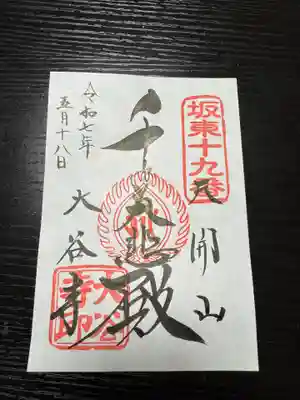 坂東十九番
天開山
千手大悲殿
大谷寺
令和七年
五月十八日
大谷寺印